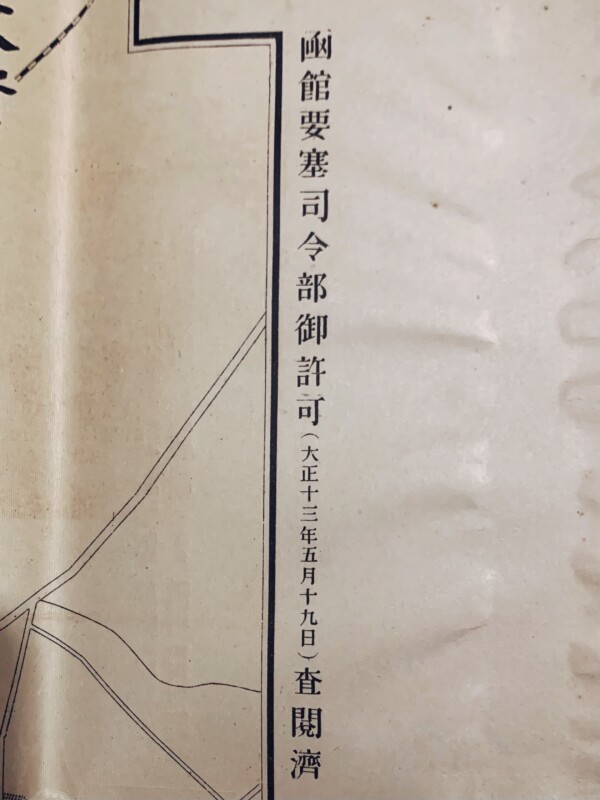 函館要塞司令部御許可(大正十三年五月十九日)査閲濟